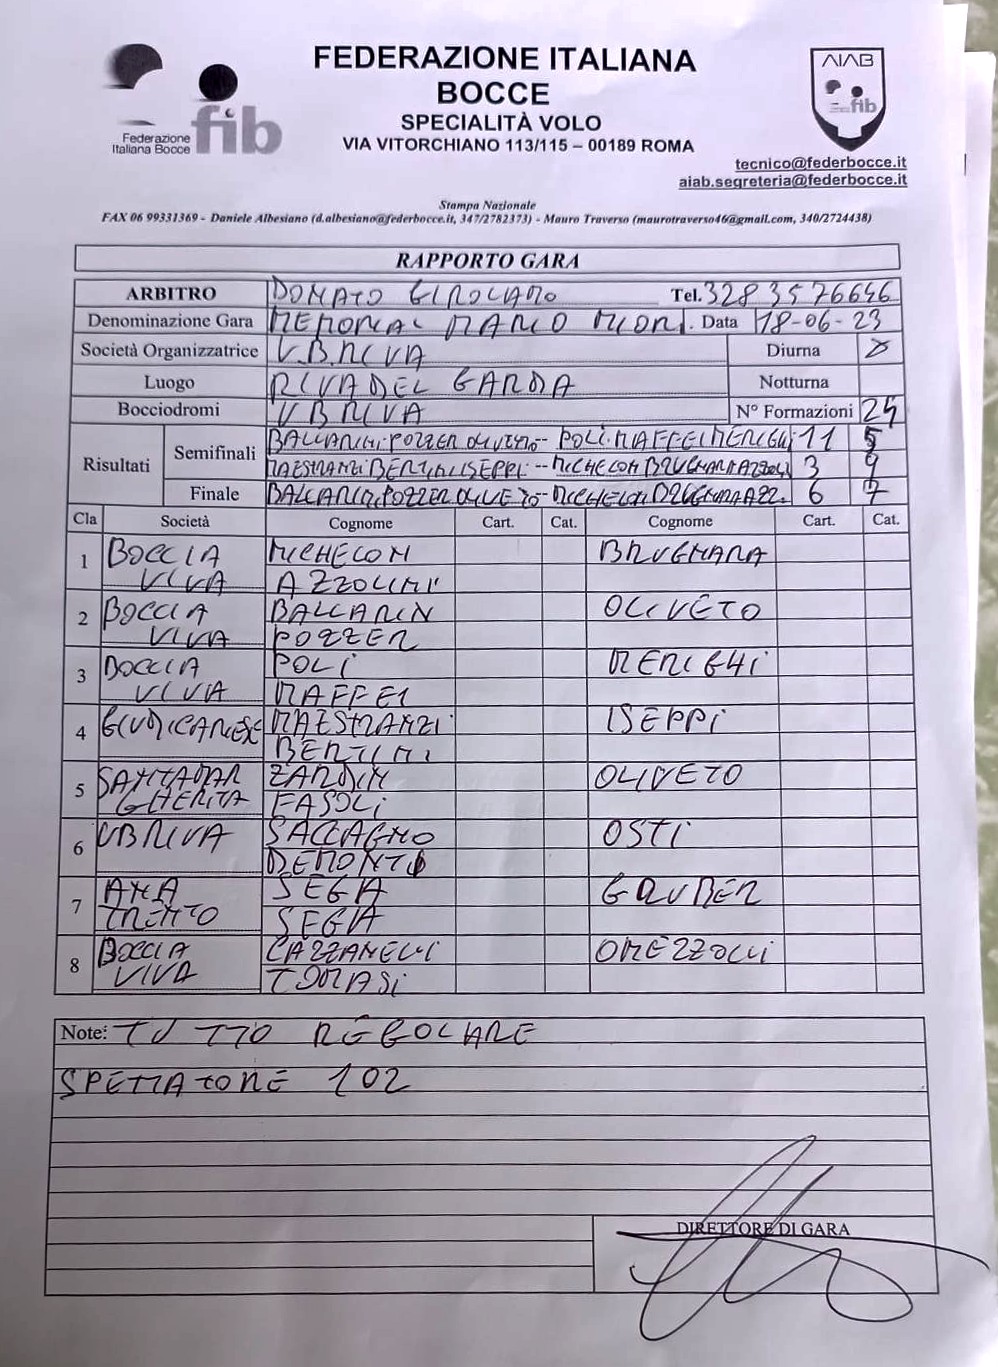 FEDERAZIONE ITALIANA
BOCCE
SPECIALITÀ VOLO
VIA VITORCHIANO 113/115 – 00189 ROMA
fib
Federazione
Italiana Bocce
AIAB
fib
tecnico@federbocce.it
aiab.segreteria@federbocce.it
Stampa Nazionale
FAX 06 99331369 - Daniele Albesiano (d.albesiano@federbocce.it, 347/2782373) - Mauro Traverso (maurotraverso46@gmail.com, 340/2724438)
RAPPORTO GARA
ARBITRO DONATO GIROLAMO Tel. 328 3576646
Denominazione Gara MEMORIAL MARIO MION. Data 18-06-23
Società Organizzatrice V.B.RIVA Diurna X
Luogo RIVA DEL GARDA Notturna
Bocciodromi VB RIVA N° Formazioni 24
Risultati Semifinali BALLARIN-POZZER OLIVETO-- POLI.MAFFEI MERIGHI 11 5
MAESTRANZI BERTINI ISEPPI -- MICHELON BRUGNARA AZZOLINI 3 9
Finale BALLARIN, POZZER OLIVETO-MICHELON BRUGNARA AZZ. 6 7
Cla Società Cognome Cart. Cat. Cognome Cart. Cat.
1 BOCCIA MICHELON BRUGNARA
VIVA AZZOLINI
2 BOCCIA BALLARIN OLIVETO
VIVA POZZER
3 BOCCIA POLI MERIGHI
VIVA MAFFEI
4 GIUDICARIESE MAESTRANZI ISEPPI
BERTINI
5 SANTA MAR ZARDIN OLIVETO
GHERITA FASOLI
6 VB RIVA SACCAGNO OSTI
DEMONTIS
7 ANA SEGA GRUBER
TRENTO SEGA
8 BOCCIA CAZZANELLI OMEZZOLLI
VIVA TOMASI
Note: TUTTO REGOLARE
SPETTATORE 102
DIRETTORE DI GARA